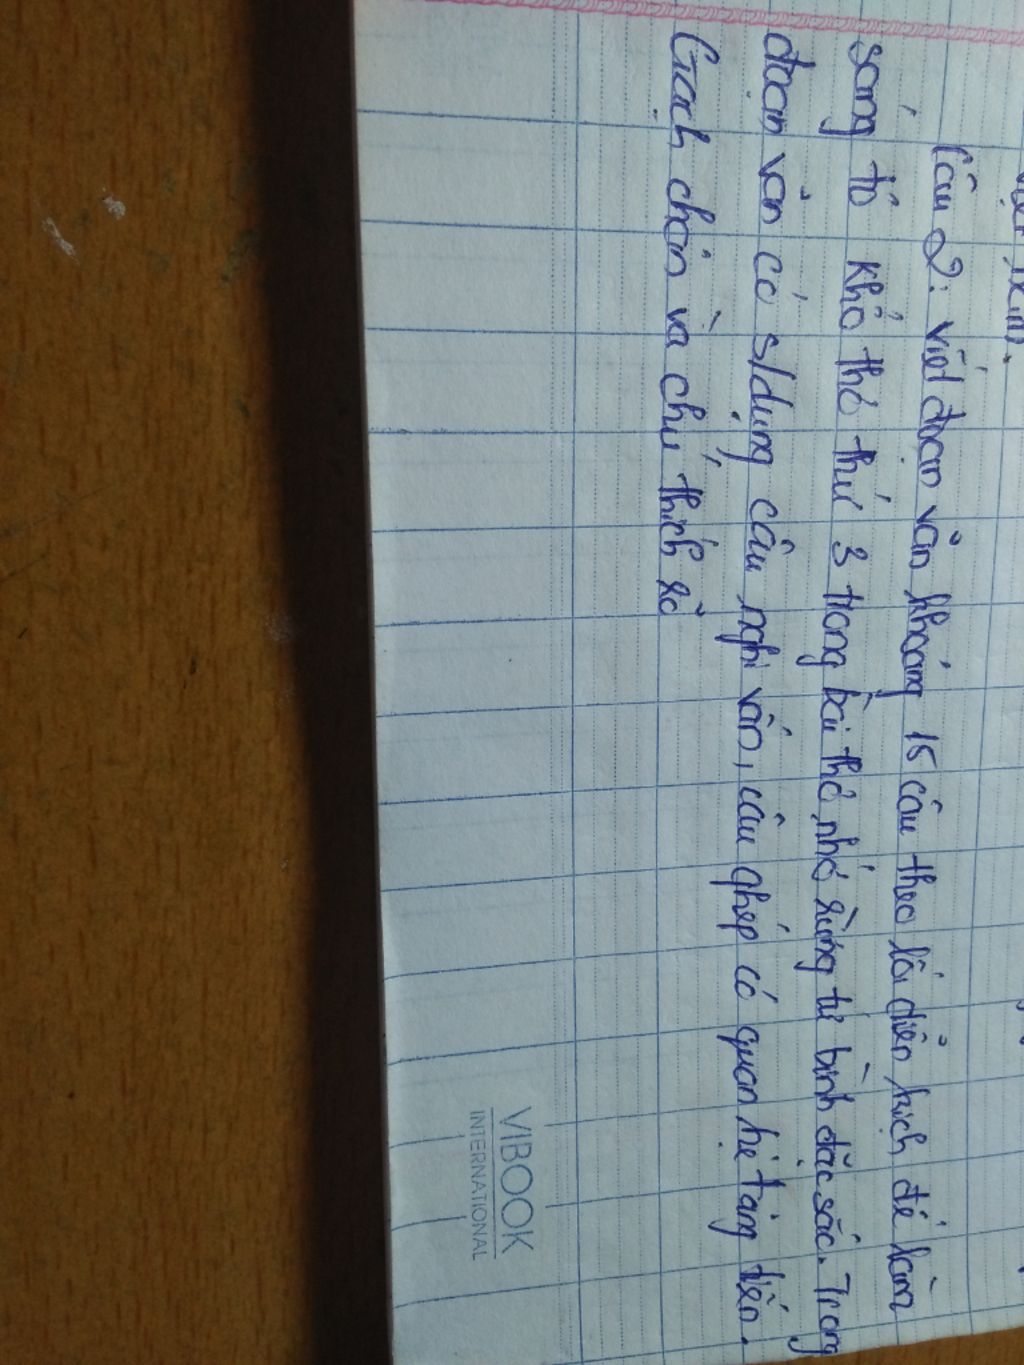 Câu 2: viết đoạn văn khoảng 15 câu theo lối diễn kịch để làm
sáng tỏ khổ thơ thứ 3 trong bài thơ nhớ rừng tứ bình đặc sắc. Trong
đoạn văn có s/dụng câu nghi vấn, câu ghép có quan hệ tăng tiến.
Gạch chân và chú thích rõ
VIBOOK
INTERNATIONAL